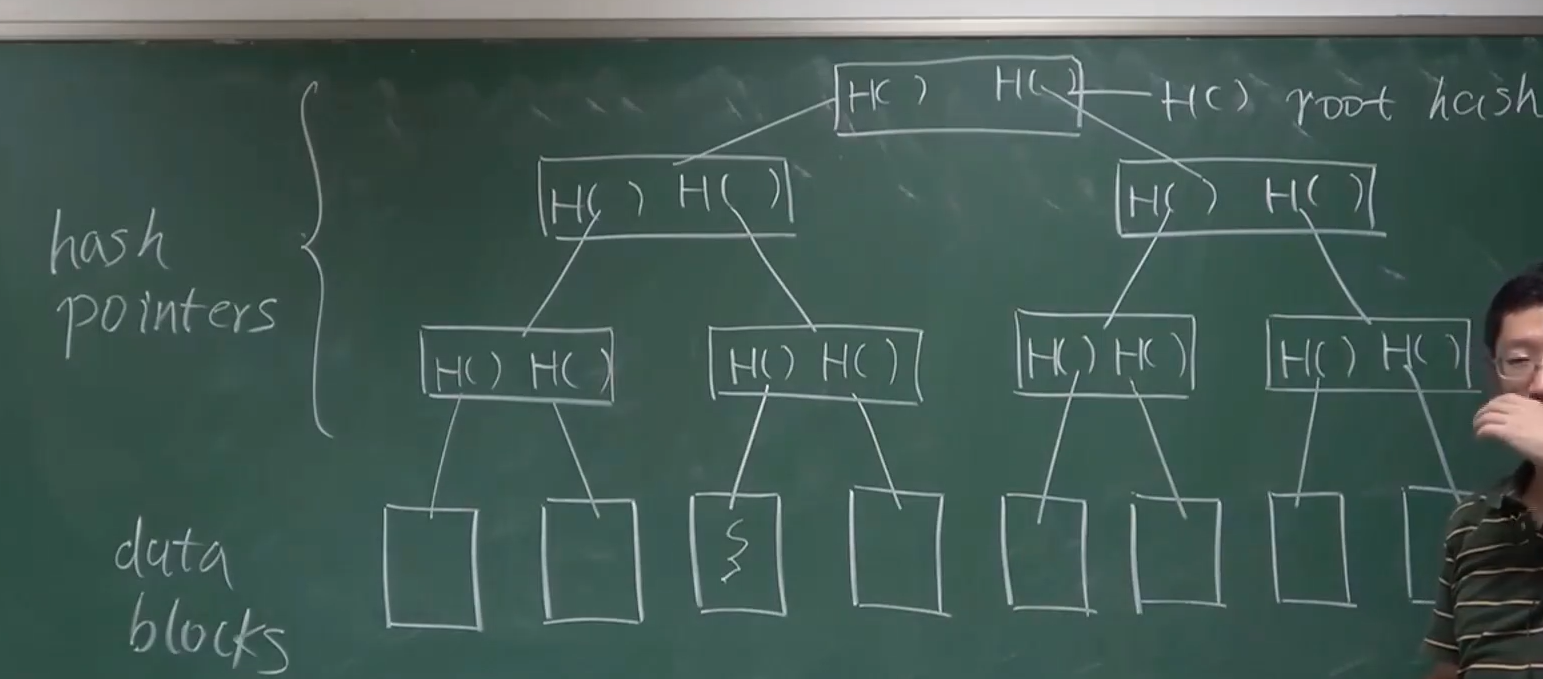 H( ) H( ) H( ) root hash
H( ) H( ) H( ) H( )
hash
pointers
H( ) H( ) H( ) H( ) H( ) H( ) H( ) H( )
data
blocks